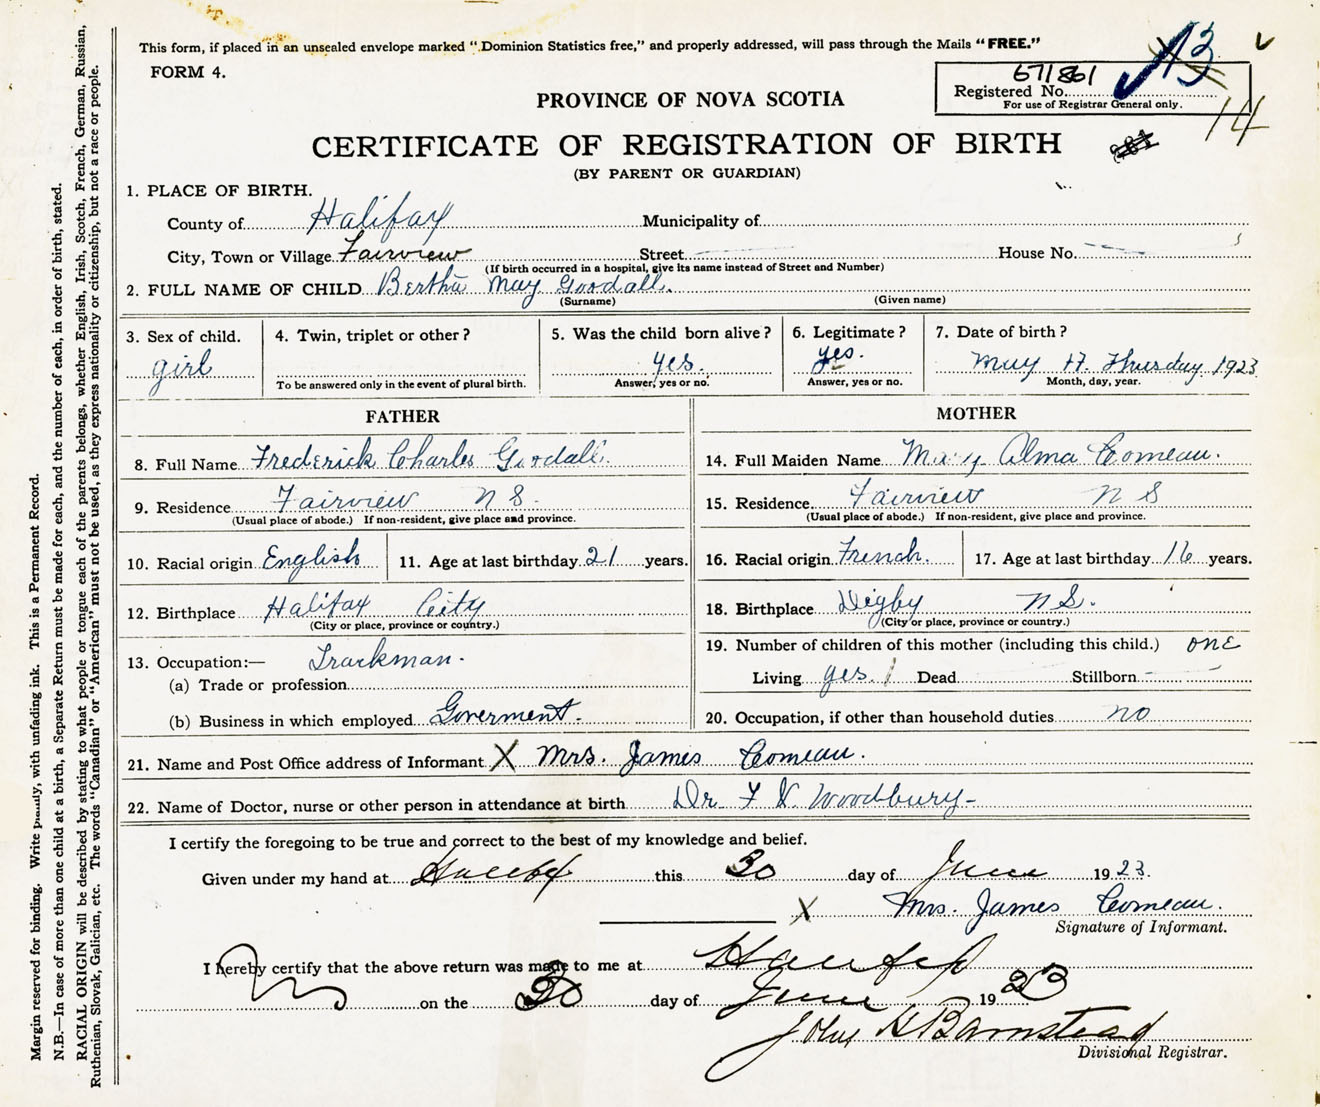 This form, if placed in an unsealed envelope marked "Dominion Statistics free," and properly addressed, will pass through the Mails "FREE."
FORM 4.
671861
13
Registered No.
For use of Registrar General only.
14
PROVINCE OF NOVA SCOTIA
CERTIFICATE OF REGISTRATION OF BIRTH
(BY PARENT OR GUARDIAN)
1. PLACE OF BIRTH.
County of Halifax Municipality of
City, Town or Village Fairview Street House No.
(If birth occurred in a hospital, give its name instead of Street and Number)
2. FULL NAME OF CHILD Bertha May Goodall.
(Surname) (Given name)
3. Sex of child. girl
4. Twin, triplet or other?
To be answered only in the event of plural birth.
5. Was the child born alive? yes.
Answer, yes or no.
6. Legitimate? yes.
Answer, yes or no.
7. Date of birth? May 17. Thursday. 1923
Month, day, year.
FATHER
8. Full Name Frederick Charles Goodall.
9. Residence Fairview N S.
(Usual place of abode.) If non-resident, give place and province.
10. Racial origin English
11. Age at last birthday 21 years.
12. Birthplace Halifax City
(City or place, province or country.)
13. Occupation:— Trackman.
(a) Trade or profession
(b) Business in which employed Goverment.
MOTHER
14. Full Maiden Name Mary Alma Comeau.
15. Residence Fairview N S
(Usual place of abode.) If non-resident, give place and province.
16. Racial origin French.
17. Age at last birthday 16 years.
18. Birthplace Digby N S.
(City or place, province or country.)
19. Number of children of this mother (including this child.) one
Living yes. 1 Dead Stillborn -
20. Occupation, if other than household duties no
21. Name and Post Office address of Informant X Mrs. James Comeau.
22. Name of Doctor, nurse or other person in attendance at birth Dr. F V Woodbury-
I certify the foregoing to be true and correct to the best of my knowledge and belief.
Given under my hand at Halifax this 30 day of June 1923.
X Mrs. James Comeau.
Signature of Informant.
I hereby certify that the above return was made to me at Halifax
on the 30 day of June 1923
John H Barnstead
Divisional Registrar.
Margin reserved for binding. Write plainly, with unfading ink. This is a Permanent Record.
N.B.—In case of more than one child at a birth, a Separate Return must be made for each, and the number of each, in order of birth, stated.
RACIAL ORIGIN will be described by stating to what people or tongue each of the parents belongs, whether English, Irish, Scotch, French, German, Russian,
Ruthenian, Slovak, Galician, etc. The words "Canadian" or "American" must not be used, as they express nationality or citizenship, but not a race or people.